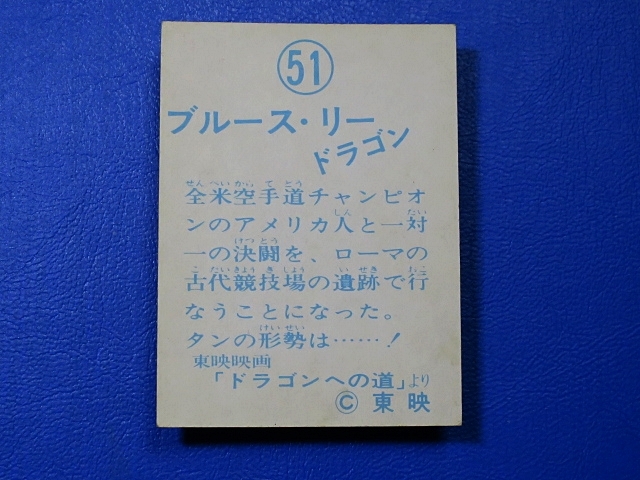 51
ブルース・リー
ドラゴン
全米空手道チャンピオ
ンのアメリカ人と一対
一の決闘を、ローマの
古代競技場の遺跡で行
なうことになった。
タンの形勢は……！
東映映画
「ドラゴンへの道」より
© 東映